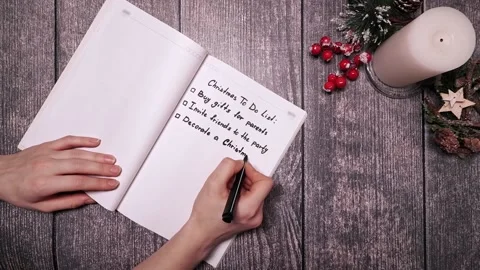 Christmas To Do List:
□ Buy gifts for parents
□ Invite friends to the party
□ Decorate a Christm